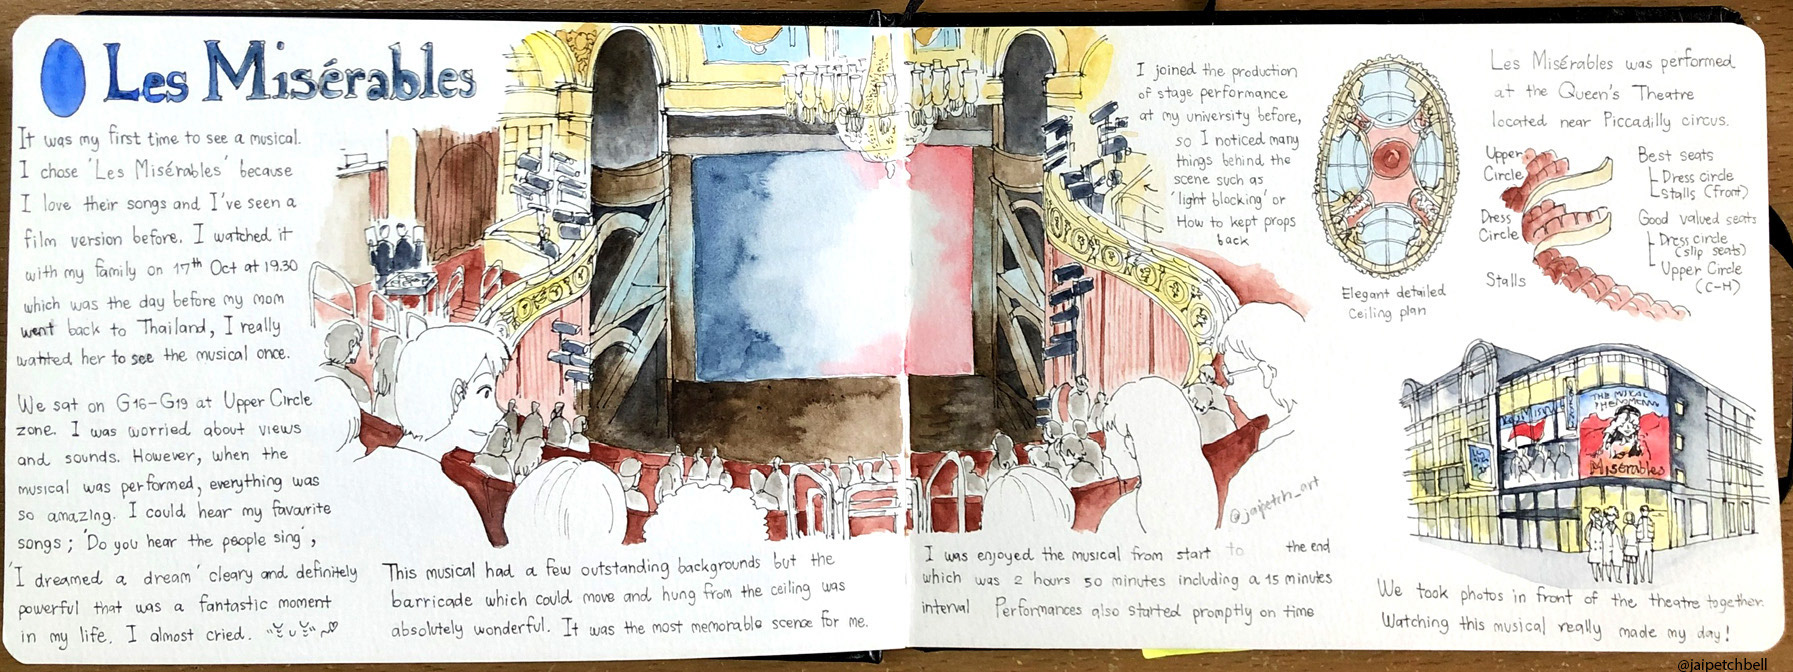 Les Misérables
It was my first time to see a musical.
I chose 'Les Misérables' because
I love their songs and I've seen a
film version before. I watched it
with my family on 17th Oct at 19.30
which was the day before my mom
went back to Thailand, I really
wanted her to see the musical once.
We sat on G16-G19 at Upper Circle
zone. I was worried about views
and sounds. However, when the
musical was performed, everything was
so amazing. I could hear my favourite
songs ; 'Do you hear the people sing',
'I dreamed a dream' cleary and definitely
powerful that was a fantastic moment
in my life. I almost cried.
This musical had a few outstanding backgrounds but the
barricade which could move and hung from the ceiling was
absolutely wonderful. It was the most memorable scence for me.
I joined the production
of stage performance
at my university before,
so I noticed many
things behind the
scene such as
'light blocking' or
How to kept props
back
@jaipetch_art
I was enjoyed the musical from start to the end
which was 2 hours 50 minutes including a 15 minutes
interval Performances also started promptly on time
Elegant detailed
Ceiling plan
Les Misérables was performed
at the Queen's Theatre
located near Piccadilly circus.
Upper
Circle
Dress
Circle
Stalls
Best seats
Dress circle
Stalls (front)
Good valued seats
Dress circle
(slip seats)
Upper Circle
(C-H)
THE MUSICAL
PHENOMENON
Misérables
We took photos in front of the theatre together.
Watching this musical really made my day!
@jaipetchbell